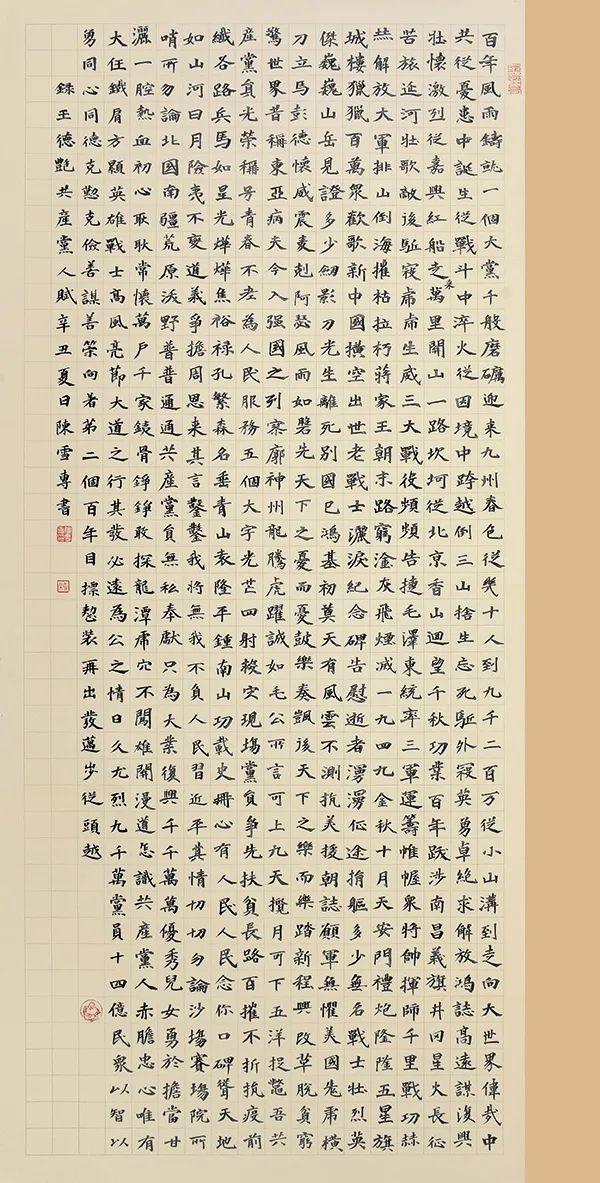 百年風雨鑄就一個大黨千般磨礪迎來九州春色從幾十人到九千二百万從小山溝到走向大世界偉哉中
共從憂患中誕生從戰斗中淬火從困境中跨越倒三山捨生忘死駈外寇英勇卓絶求解放鴻誌高遠謀復興
壯懷激烈從嘉興紅船走來萬里開山一路坎坷從北京香山迴望千秋功業百年跋涉南昌義旗井冈星火長征
苦旅延河壯歌敵後駈寇虎虎生威三大戰役頻頻告捷毛澤東統率三軍運籌帷幄衆將帥揮師千里戰功赫
赫解放大軍排山倒海摧枯拉朽蔣家王朝末路窮途灰飛煙滅一九四九金秋十月天安門禮炮隆隆五星旗
城樓獵獵百萬衆歡歌新中國橫空出世老戰士灑淚紀念碑告慰逝者漫漫征途捐軀多少無名戰士壯烈英
傑巍巍山岳見證多少劒影刀光生離死別國已鴻基初奠天有風雲不測抗美援朝誌願軍無懼美國老虎橫
刀立馬彭德懷威震麦剋阿瑟風雨如磐先天下之憂而憂鼓樂奏凱後天下之樂而樂踏新程興改革脫貧窮
驚世界昔稱東亞病夫今入强國之列寥廓神州龍騰虎躍誠如毛公所言可上九天攬月可下五洋捉鱉吾共
産黨員光榮稱号青春不老為人民服務五個大字光芒四射救灾現塲黨員争先扶貧長路百摧不折抗疫前
纖各路兵馬如星光燁燁焦裕禄孔繁森名垂青山袁隆平鍾南山功載史冊心有人民人民念你口碑聳天地
如山河日月險夷不變道義争擔周恩来其言鑿鑿我將無我不負人民習近平其情切切勿論沙塲賽塲院所
哨所勿論北國南疆荒原沃野普普通通共産黨員無私奉獻只為大業復興千千萬萬優秀兒女勇於擔當甘
灑一腔熱血初心耿耿常懷萬戶千家鐵骨錚錚敢探龍潭虎穴不闖難關漫道怎識共産黨人赤膽忠心唯有
大任鐵肩方顯英雄戰士高風亮節大道之行其發必遠為公之情日久尤烈九千萬黨員十四億民衆以智以
勇同心同德克勤克儉善謀善策向着第二個百年目標整裝再出發邁步從頭越
錄王德艷共産黨人賦辛丑夏日陳雪專書